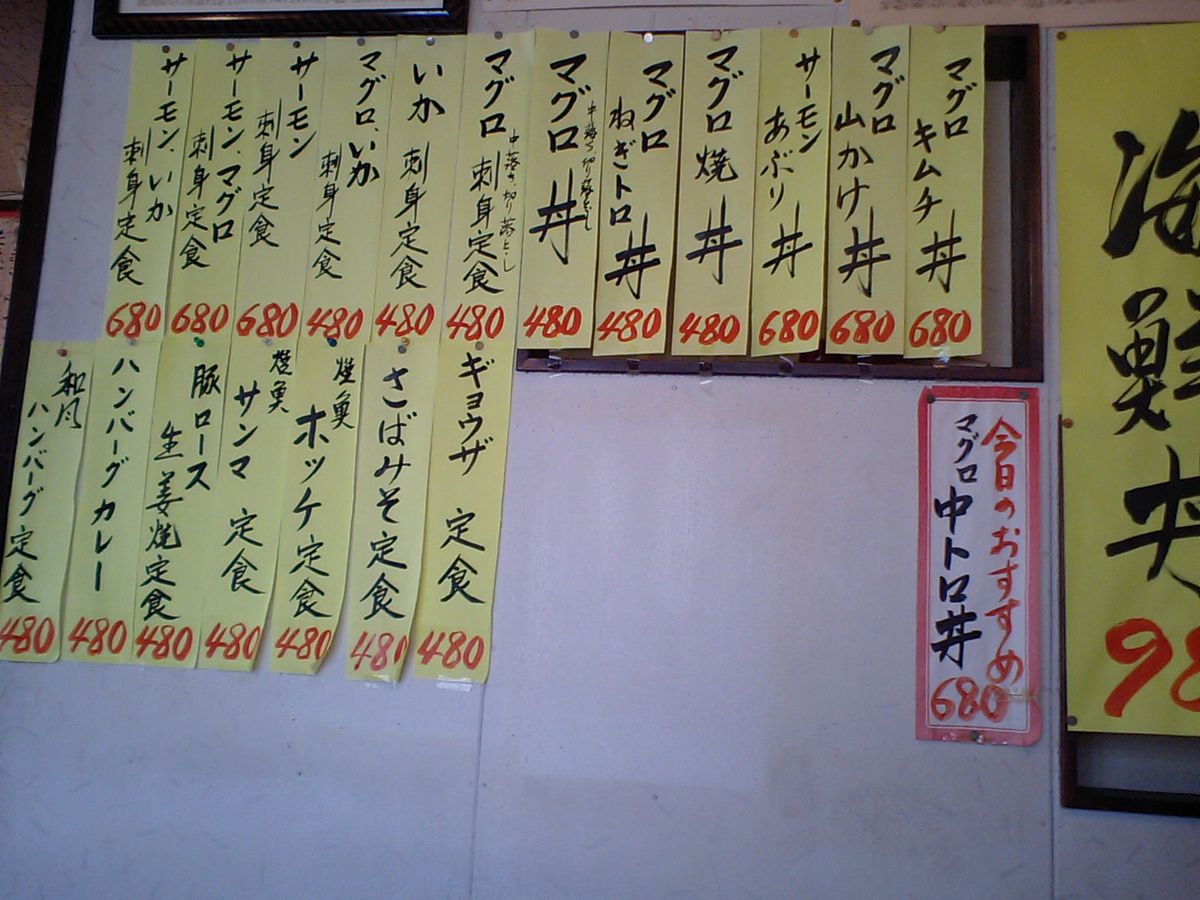 海鮮丼
98
今日のおすすめ
マグロ
中トロ丼
680
マグロ
キムチ丼
680
マグロ
山かけ丼
680
サーモン
あぶり丼
680
マグロ焼丼
480
マグロ
ねぎトロ丼
480
マグロ丼
中落ち、切り落とし
480
マグロ刺身定食
中落ち、切り落とし
480
いか刺身定食
480
マグロ、いか
刺身定食
480
サーモン
刺身定食
680
サーモン、マグロ
刺身定食
680
サーモン、いか
刺身定食
680
ギョウザ定食
480
さばみそ定食
480
焼魚
ホッケ定食
480
焼魚
サンマ定食
480
豚ロース
生姜焼定食
480
ハンバーグカレー
480
和風
ハンバーグ定食
480